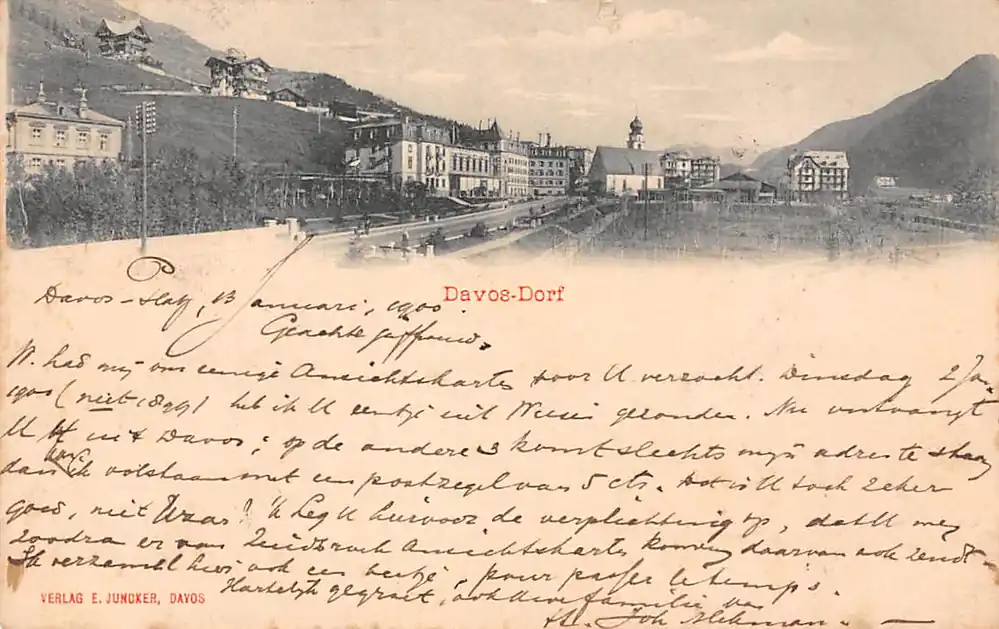 Davos-Dorf
Davos-Platz, 13 Januari, 1900.
Geachte Juffrouw,
W. had mij om eenige Ansichtskarten voor U verzocht. Dinsdag 2 Jan.
1900 (niet 1899) heb ik U eentje uit gezonden. Nu ontvangt
U uit Davos; op de andere 3 komt slechts mijn adres te staan
dan ik volstaan met een postzegel van 5 cts. Dat is U toch zeker
goed, niet waar? Ik leg U hiervoor de verplichting op, dat U mij
zoodra er van Zuidbroek Ansichtskarten komen, daarvan ook zendt.
Ik verzamel hier ook een beetje, pour passer le temps.
Hartelijk gegroet, ook Uwe familie van
Joh.
VERLAG E. JUNCKER, DAVOS